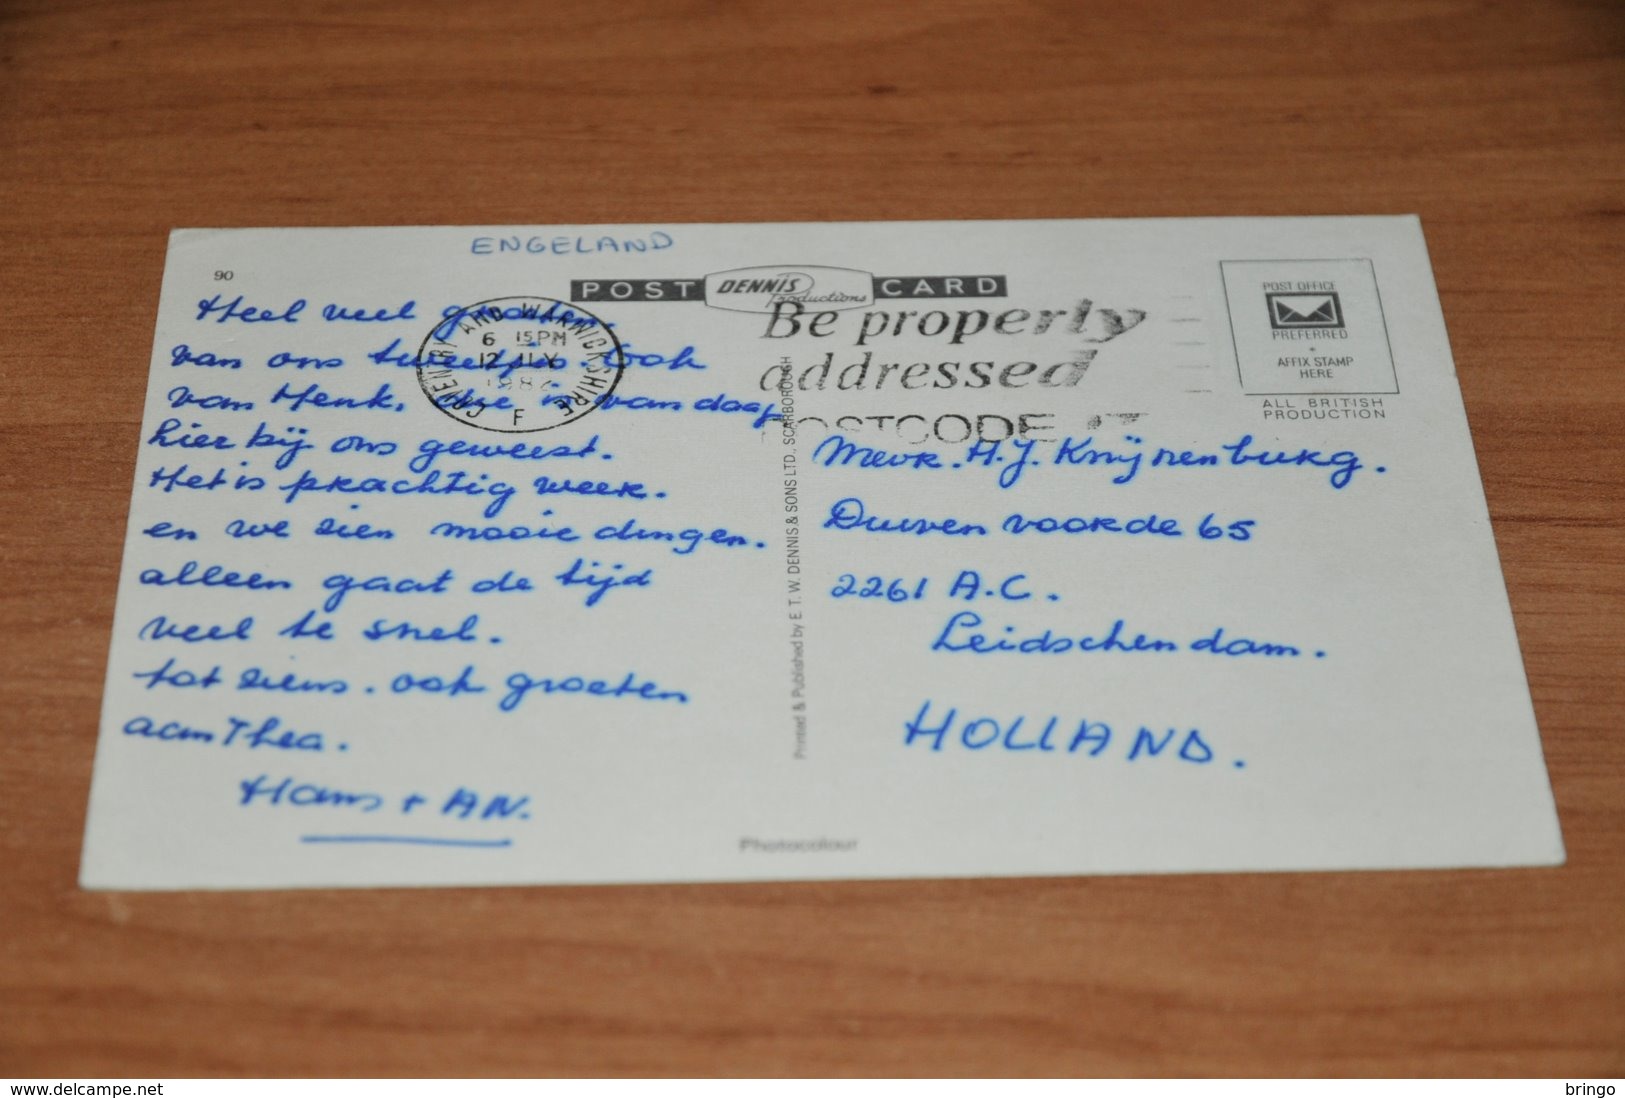 ENGELAND
90
POST DENNIS Productions CARD
Heel veel groeten
van ons tweetjes. ook
van Henk, die is vandaag
hier bij ons geweest.
Het is prachtig weer.
en we zien mooie dingen.
alleen gaat de tijd
veel te snel.
tot ziens. ook groeten
aan Thea.
Hans + AN.
COVENTRY AND WARWICKSHIRE
6 15PM
12 JLY
F
Be properly
addressed
POSTCODE it
Printed & Published by E. T. W. DENNIS & SONS LTD., SCARBOROUGH
POST OFFICE
PREFERRED
AFFIX STAMP
HERE
ALL BRITISH
PRODUCTION
Mevr. H.J. Knijnenburg.
Duivenvoorde 65
2261 A.C.
Leidschendam.
HOLLAND.
Photocolour
www.delcampe.net
bringo